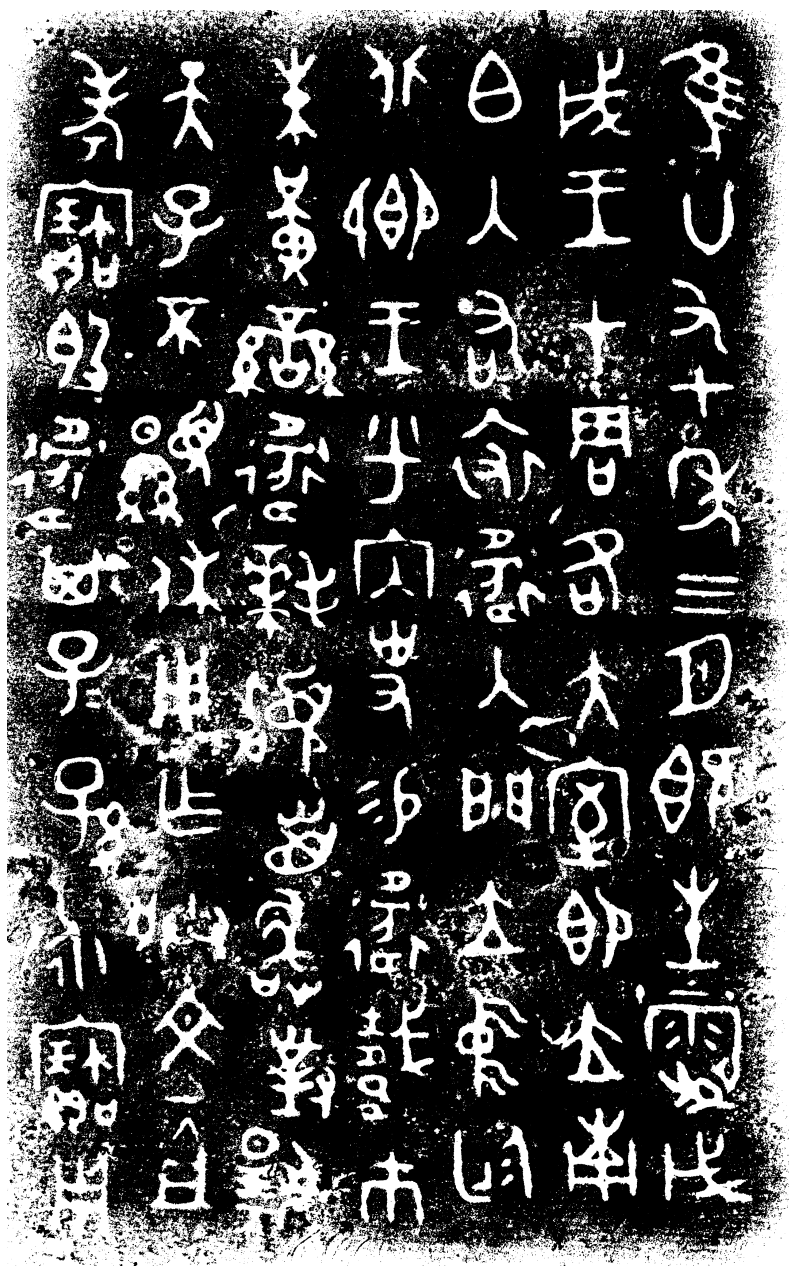 隹廿又七年三月既生霸戊
戌王才周各大室即立南
白入右裘衛入門立中廷
北鄉王乎內史易衛載市
朱黃䜌衛拜𩒨首敢對揚
天子不顯休用乍朕文且
考寶𣪘衛其子=孫=永寶用